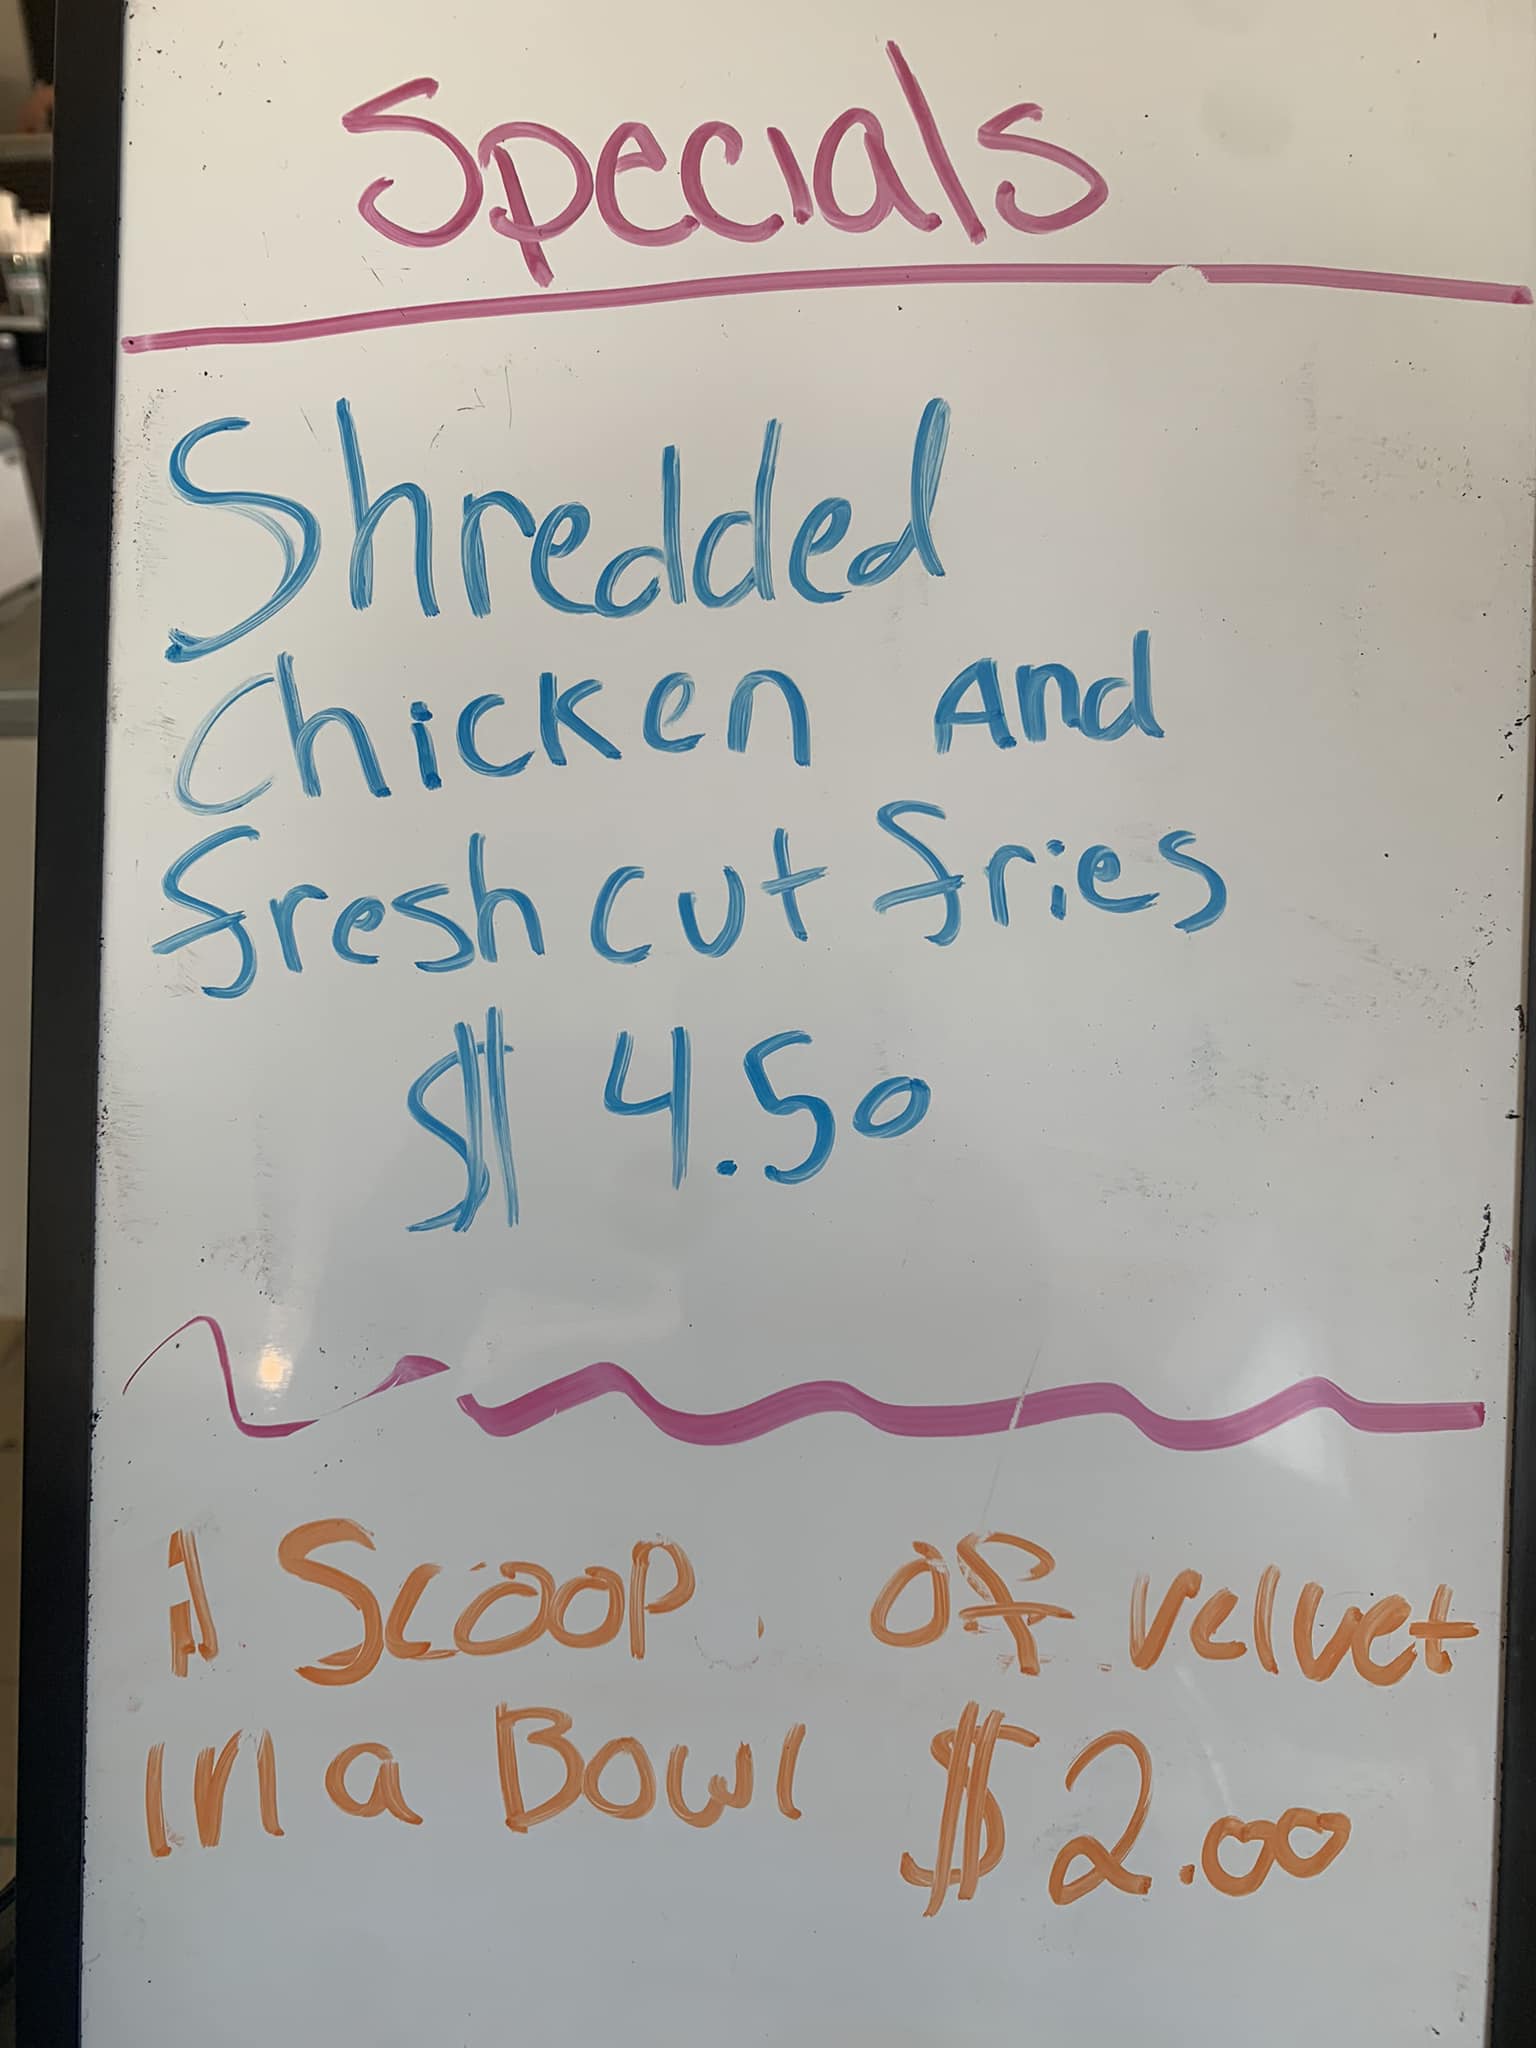 Specials
Shredded
Chicken And
fresh cut fries
$ 4.50
1 Scoop of velvet
in a Bowl $2.00